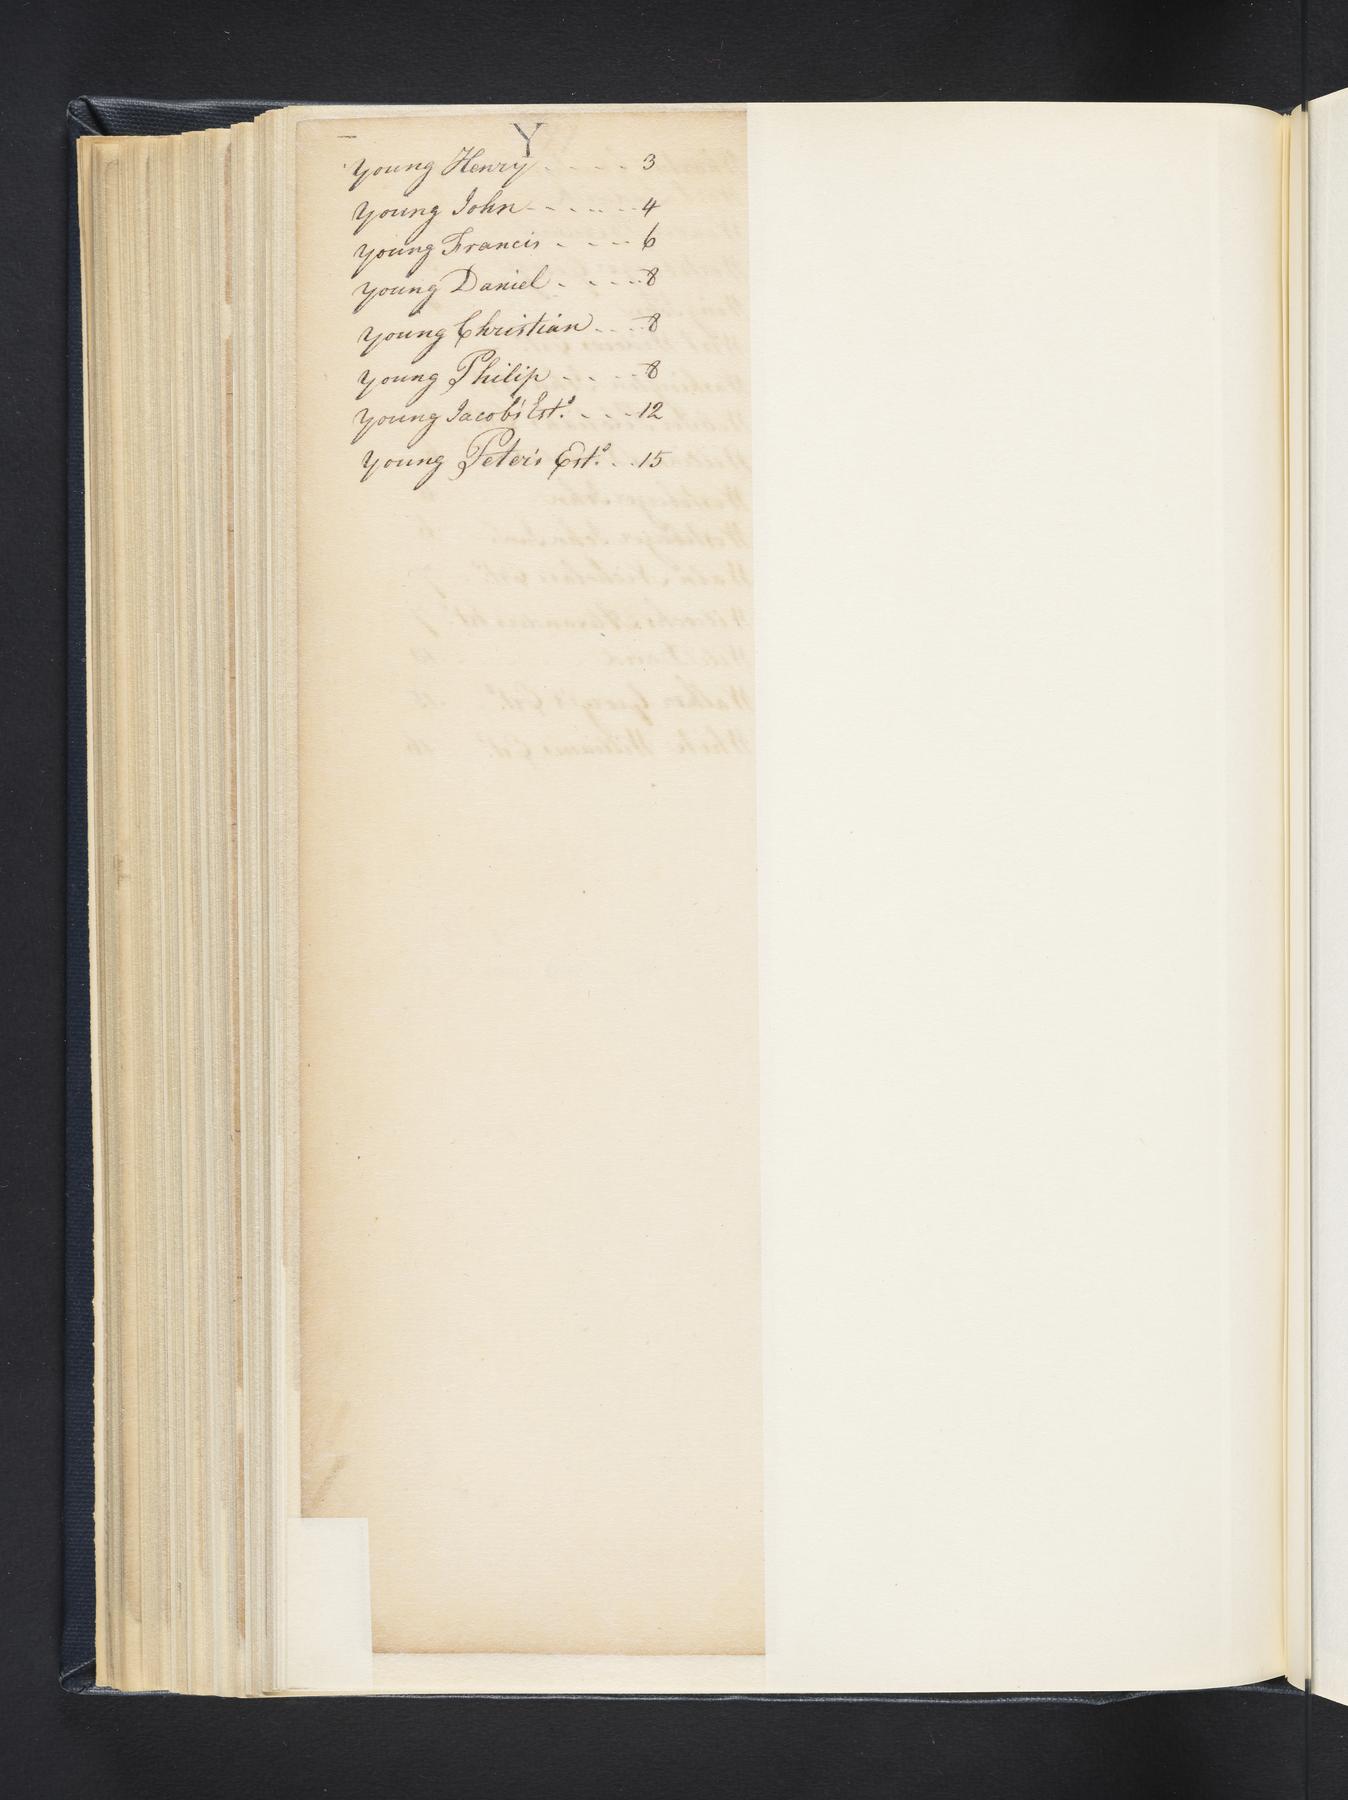 Y
Young Henry - - - - 3
Young John - - - - - - 4
Young Francis - - - - 6
Young Daniel - - - - - 8
Young Christian - - - 8
Young Philip - - - - 8
Young Jacob's Est.ᵉ - - - 12
Young Peter's Est.ᵉ - - 15